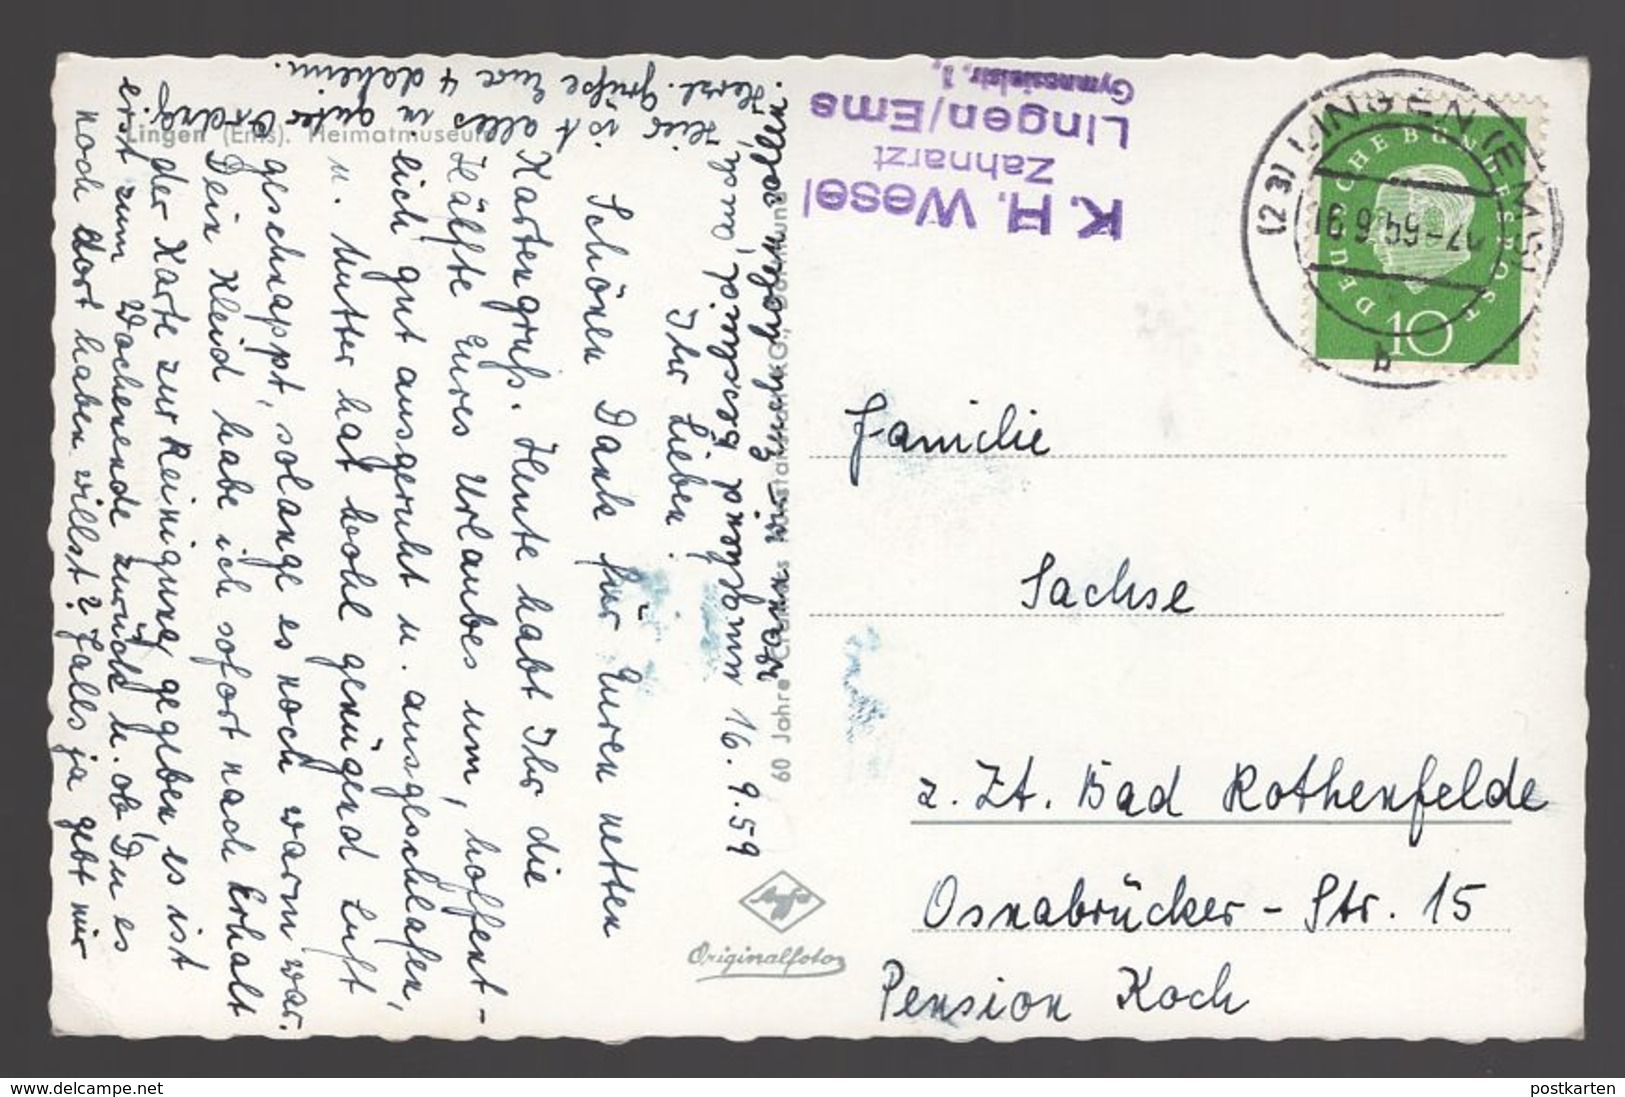 Lingen (Ems). Heimatmuseum
60 Jahre Cramers Kunstanstalt KG., Dortmund
Originalfoto
K. H. Wesel
Zahnarzt
Lingen/Ems
Gymnasialstr. 1,
(23) LINGEN (EMS)
16.9.59-17
b
DEUTSCHE BUNDESPOST
10
Familie
Sachse
z. Zt. Bad Rothenfelde
Osnabrücker-Str. 15
Pension Koch
16.9.59
Ihr Lieben!
Schönen Dank für Euren netten
Kartengruß. Heute habt Ihr die
Hälfte Eures Urlaubes um, hoffent-
lich gut ausgeruht u. ausgeschlafen,
u. Mutter hat wohl genügend Luft
geschnappt, solange es noch warm war.
Dein Kleid habe ich sofort nach Erhalt
der Karte zur Reinigung gegeben, es ist
erst zum Wochenende zurück u. ob Du es
noch dort haben willst? Falls ja gebt mir
umgehend Bescheid, auch
wann wir Euch holen sollen
Hier ist alles in guter Ordng.
Herzl. Grüße Eure 4 daheim.
www.delcampe.net
postkarten